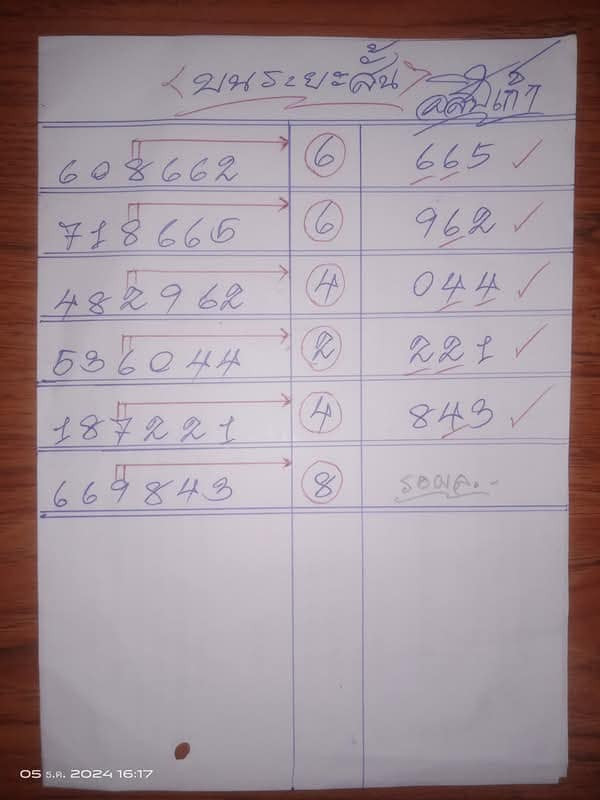 บนระยะสั้น
608662 6 665
718665 6 962
482962 4 044
536044 2 221
187221 4 843
669843 8 รอผล..
05 ธ.ค. 2024 16:17